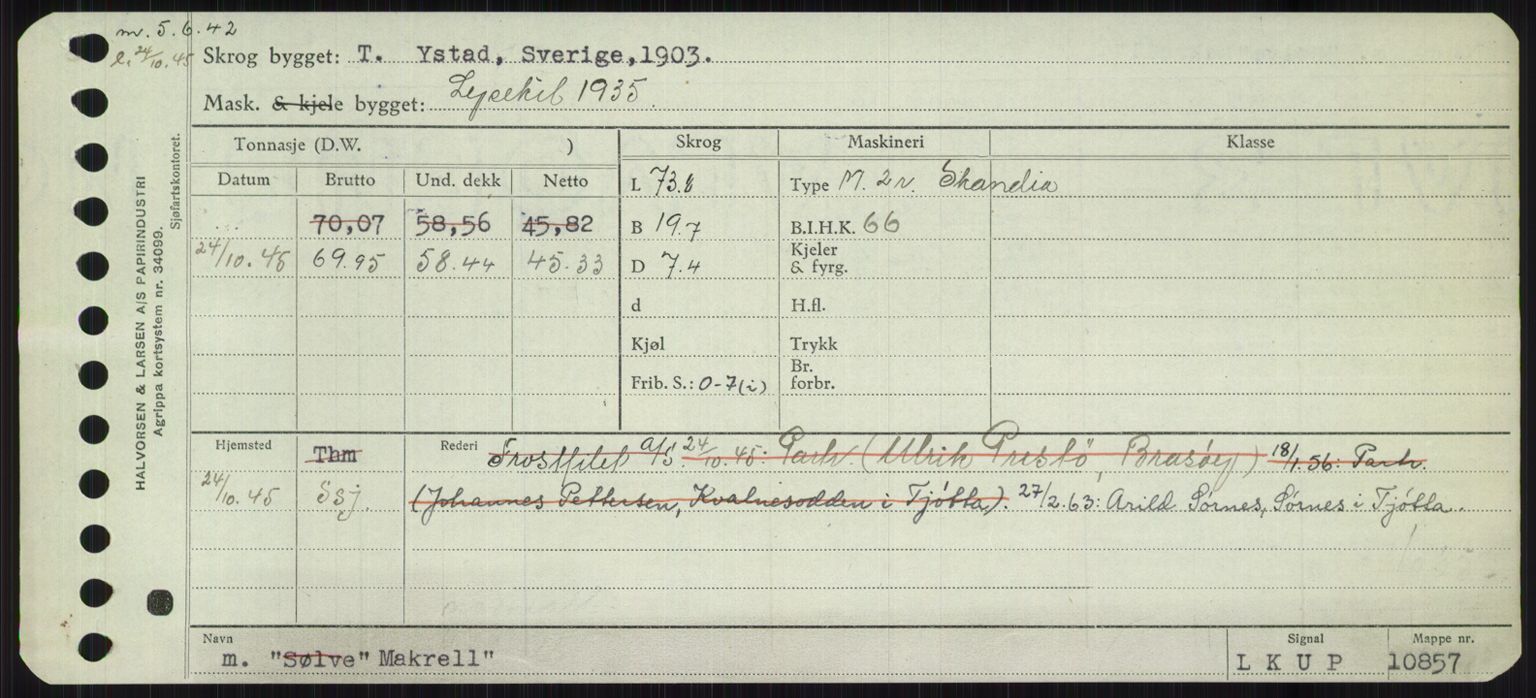 m. 5.6.42
l. 24/10.45
Skrog bygget: T. Ystad, Sverige, 1903.
Mask. & kjele bygget: Lysekil 1935.
Tonnasje (D.W. )
Skrog
Maskineri
Klasse
Datum
Brutto
Und. dekk
Netto
L 73.8
Type M. 2 v. Skandia
70,07
58,56
45,82
B 19.7
B.I.H.K. 66
24/10.45
69.95
58.44
45.33
D 7.4
Kjeler
& fyrg.
d
H.fl.
Kjøl
Trykk
Frib. S.: 0-7 (i)
Br.
forbr.
Hjemsted
Thm
Rederi
Frostfilet A/S. 24/10.45: Partr. (Ulrik Prestö, Brasöy) 18/1.56: Partr.
24/10.45
Ssj.
(Johannes Pettersen, Kvalnesodden i Tjøtta). 27/2.63: Arild Sørnes, Sørnes i Tjøtta.
Navn
m. "Sølve" Makrell"
Signal
LKUP
Mappe nr.
10857
HALVORSEN & LARSEN A/S PAPIRINDUSTRI
Agrippa kortsystem nr. 34099.
Sjøfartskontoret.